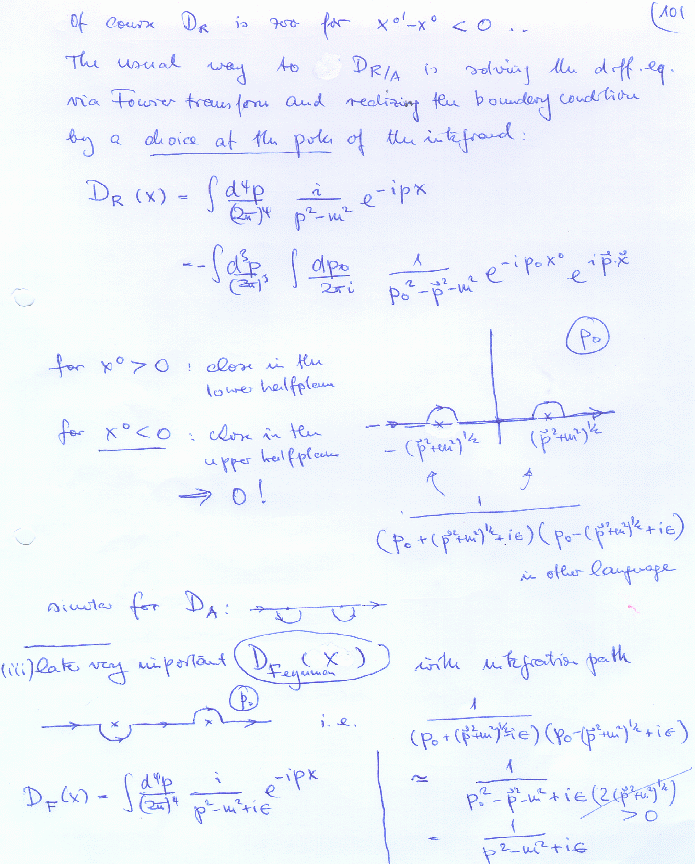 (101
Of course D_R is zero for x^{0'} - x^0 < 0 ..
The usual way to D_{R/A} is solving the diff. eq.
via Fourier transform and realizing the boundary condition
by a choice at the poles of the integrand:
D_R (x) = ∫ d^4p/(2π)^4 i/(p^2-m^2) e^{-ipx}
= - ∫ d^3p/(2π)^3 ∫ dp_0/(2πi) 1/(p_0^2 - \vec{p}^2 - m^2) e^{-ip_0x^0} e^{i\vec{p}·\vec{x}}
p_0
for x^0 > 0 : close in the
lower halfplane
for x^0 < 0 : close in the
upper halfplane
⇒ 0 !
-(\vec{p}^2+m^2)^{1/2} (\vec{p}^2+m^2)^{1/2}
1/((p_0 + (\vec{p}^2+m^2)^{1/2} + iϵ)(p_0 - (\vec{p}^2+m^2)^{1/2} + iϵ))
in other language
similar for D_A:
(iii) later very important D_{Feynman} (x) with integration path
p_0
i.e. 1/((p_0 + (\vec{p}^2+m^2)^{1/2} - iϵ)(p_0 - (\vec{p}^2+m^2)^{1/2} + iϵ))
D_F(x) = ∫ d^4p/(2π)^4 i/(p^2-m^2+iϵ) e^{-ipx}
≈ 1/(p_0^2 - \vec{p}^2 - m^2 + iϵ(2(\vec{p}^2+m^2)^{1/2}))
> 0
= 1/(p^2-m^2+iϵ)